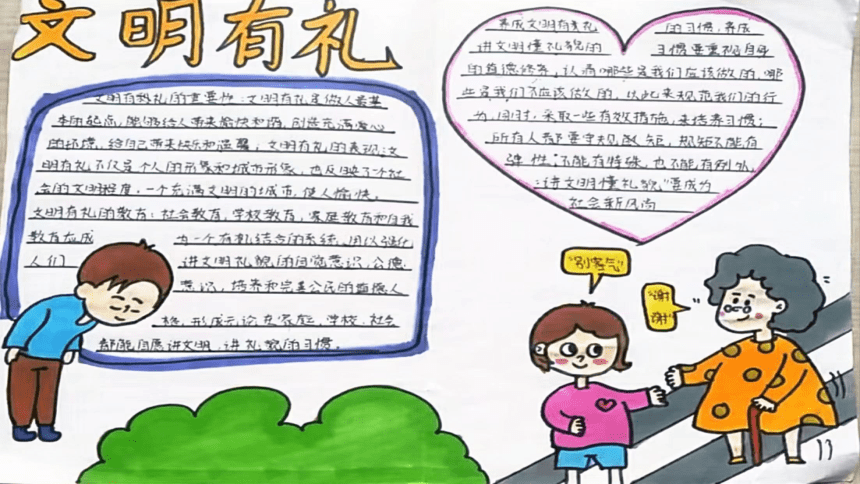 文明有礼
文明有礼的重要性：文明有礼是做人最基
本的起点，能够给人带来愉快和谐，创造充满爱心
的环境，给自己带来快乐和温馨，文明有礼的表现：文
明有礼不仅是个人的形象和城市形象，也反映了个社
会的文明程度，一个充满文明的城市，使人愉快。
文明有礼的教育：社会教育，学校教育，家庭教育和自我
教育应成 为一个有机结合的系统，用以强化
人们 讲文明礼貌的自觉意识，公德
意识，培养和完善公民的道德人
格，形成无论在家庭，学校，社会
都能自愿讲文明，讲礼貌的习惯。
养成文明有礼 的习惯，养成
讲文明懂礼貌的 习惯要重视自身
的道德修养，认清哪些是我们应该做的，哪
些是我们不应该做的，以此来规范我们的行
为，同时，采取一些有效措施，来培养习惯；
所有人都要守规章，规矩不能有
弹性，不能有特殊，也不能有例外，
"讲文明懂礼貌"要成为
社会新风尚
"别客气"
"谢
谢"
13